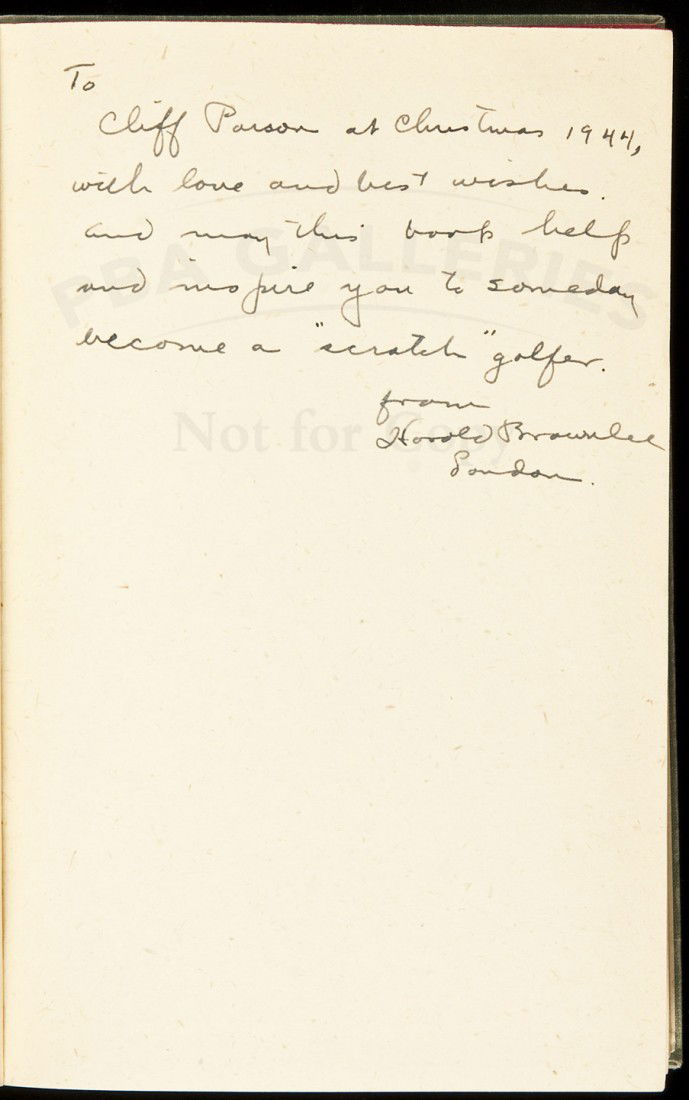 To
Cliff Parson at Christmas 1944,
with love and best wishes.
and may this book help
and inspire you to someday
become a "scratch" golfer.
from
Harold Brownlee
London.
PBA GALLERIES
Not for Copy